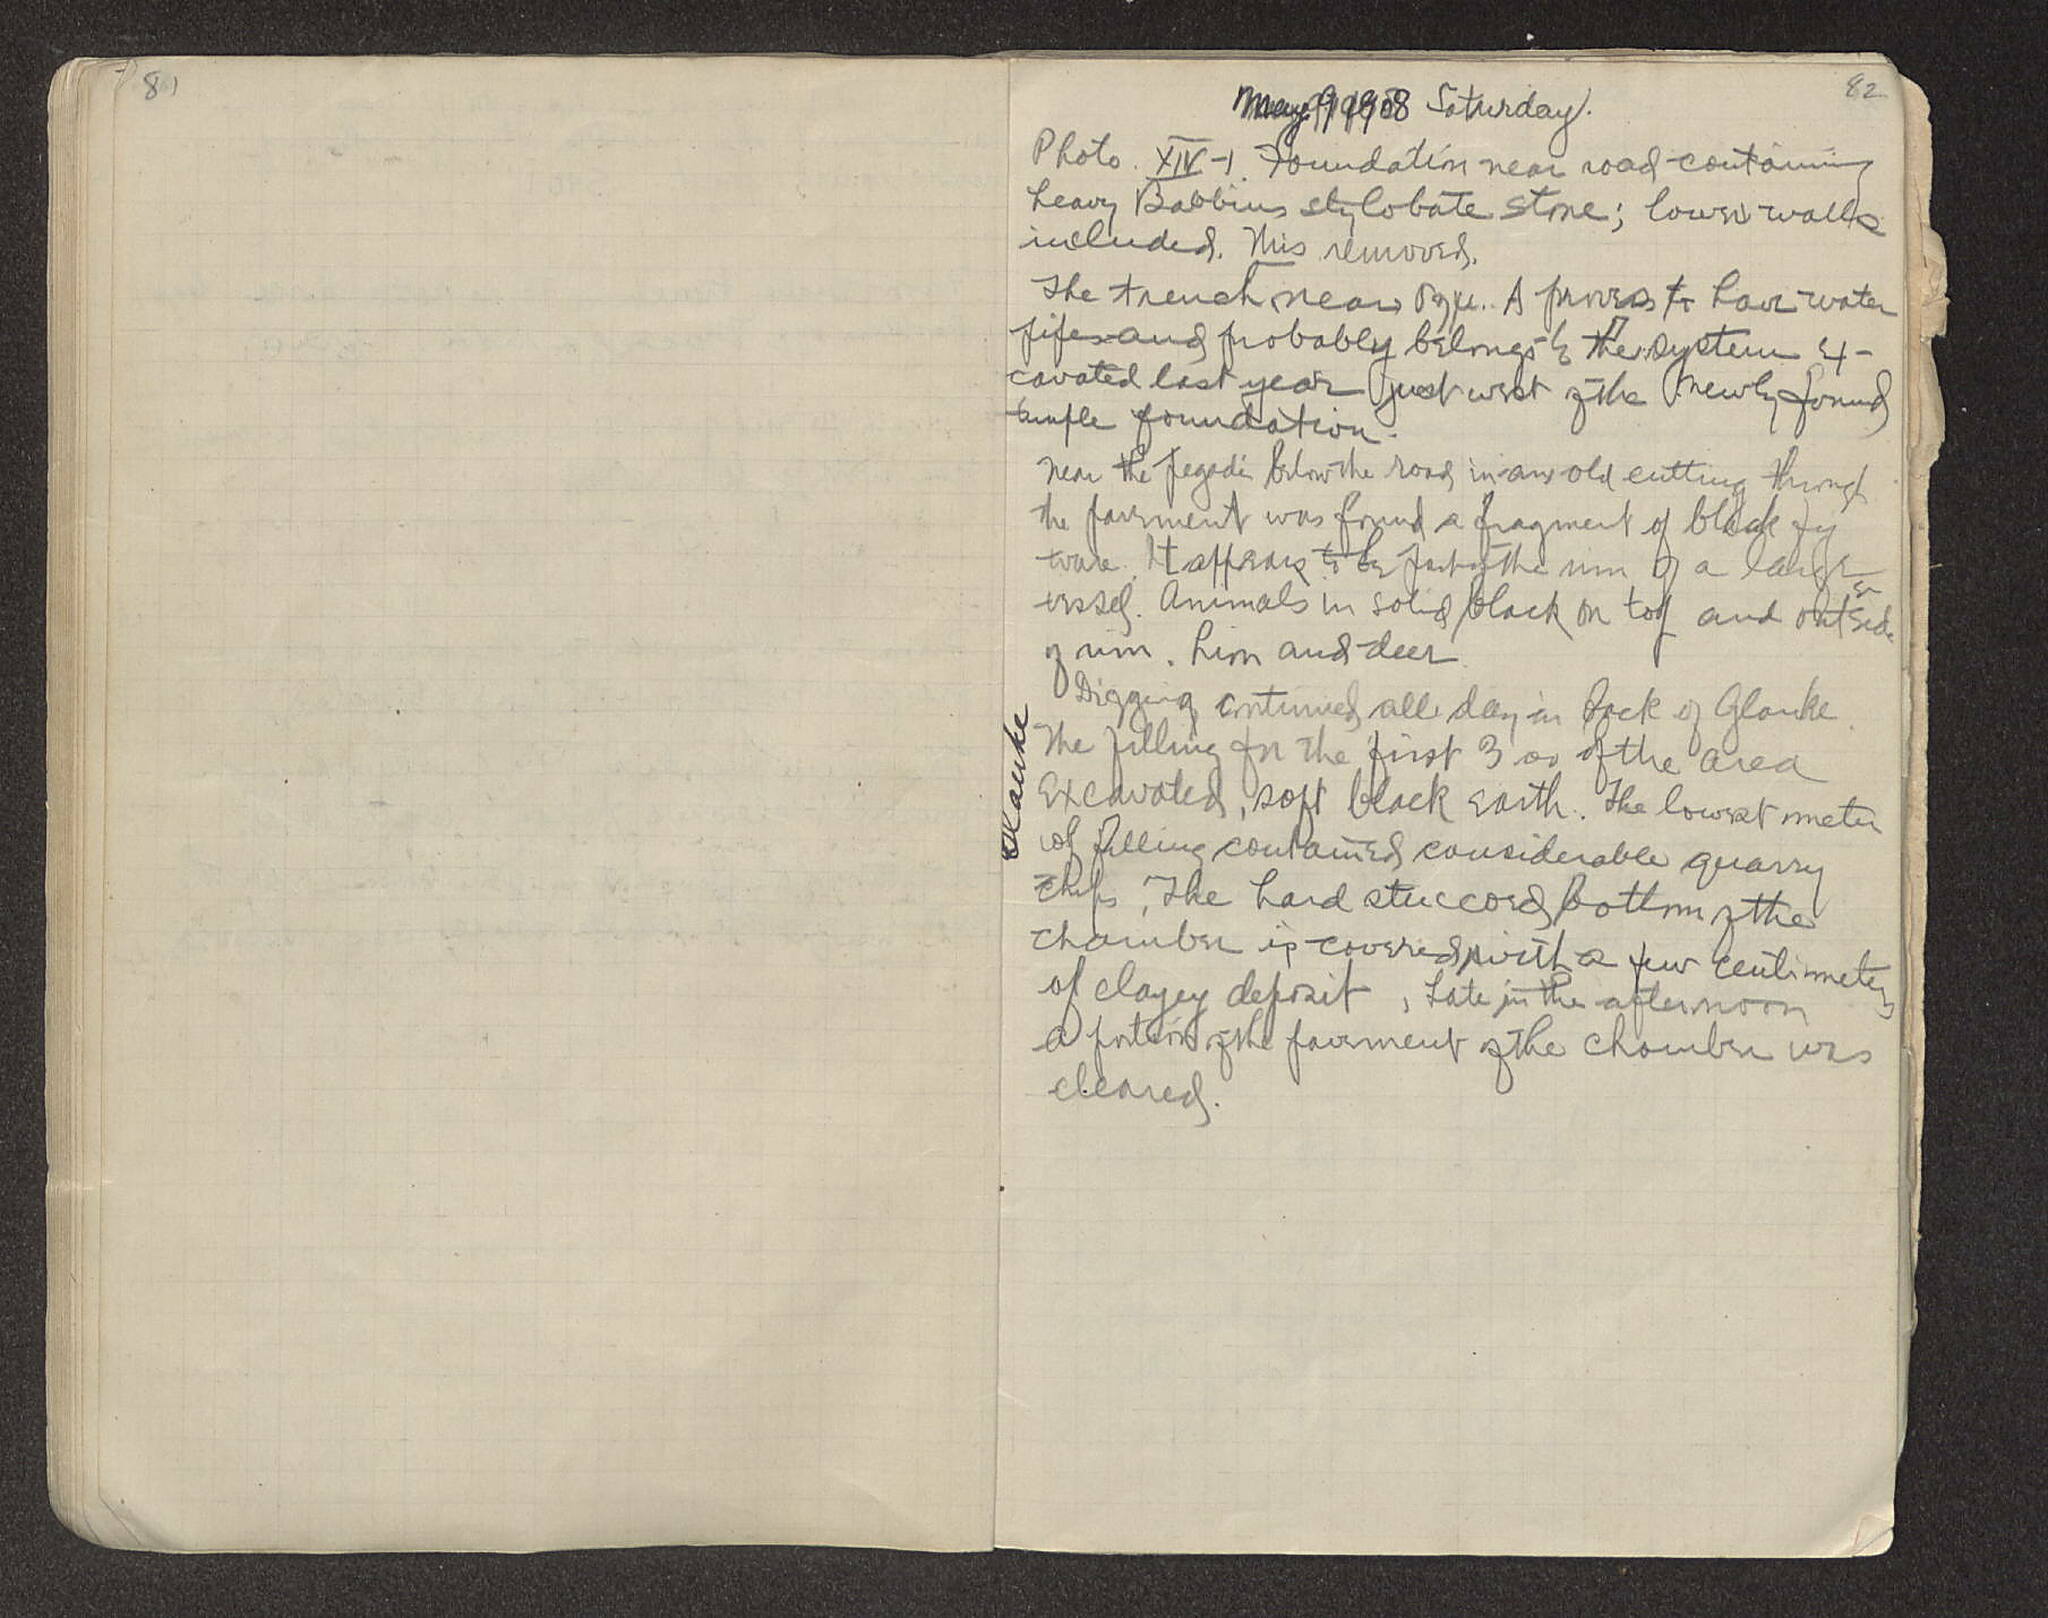 81
82
May 9 1908 Saturday.
Photo. XIV-1. Foundation near road containing
heavy Babbius stylobate stone; lower walls
included. This removed.
The trench near A proves to have water
pipes and probably belongs to the system ex-
cavated last year just west of the newly found
temple foundation.
Near the Pegadi below the road in an old cutting through
the pavement was found a fragment of black fig
ware. It appears to be part of the rim of a large
vessel. Animals in solid black on top and outside
of rim. Lion and deer
Digging continued all day in back of Glauke.
The filling for the first 3 of the area
Excavated, soft black earth. The lowest meter
of filling contained considerable quarry
chips. The hard stuccoed bottom of the
chamber is covered with a few centimeters
of clayey deposit. Late in the afternoon
a portion of the pavement of the chamber was
cleared.
Glauke